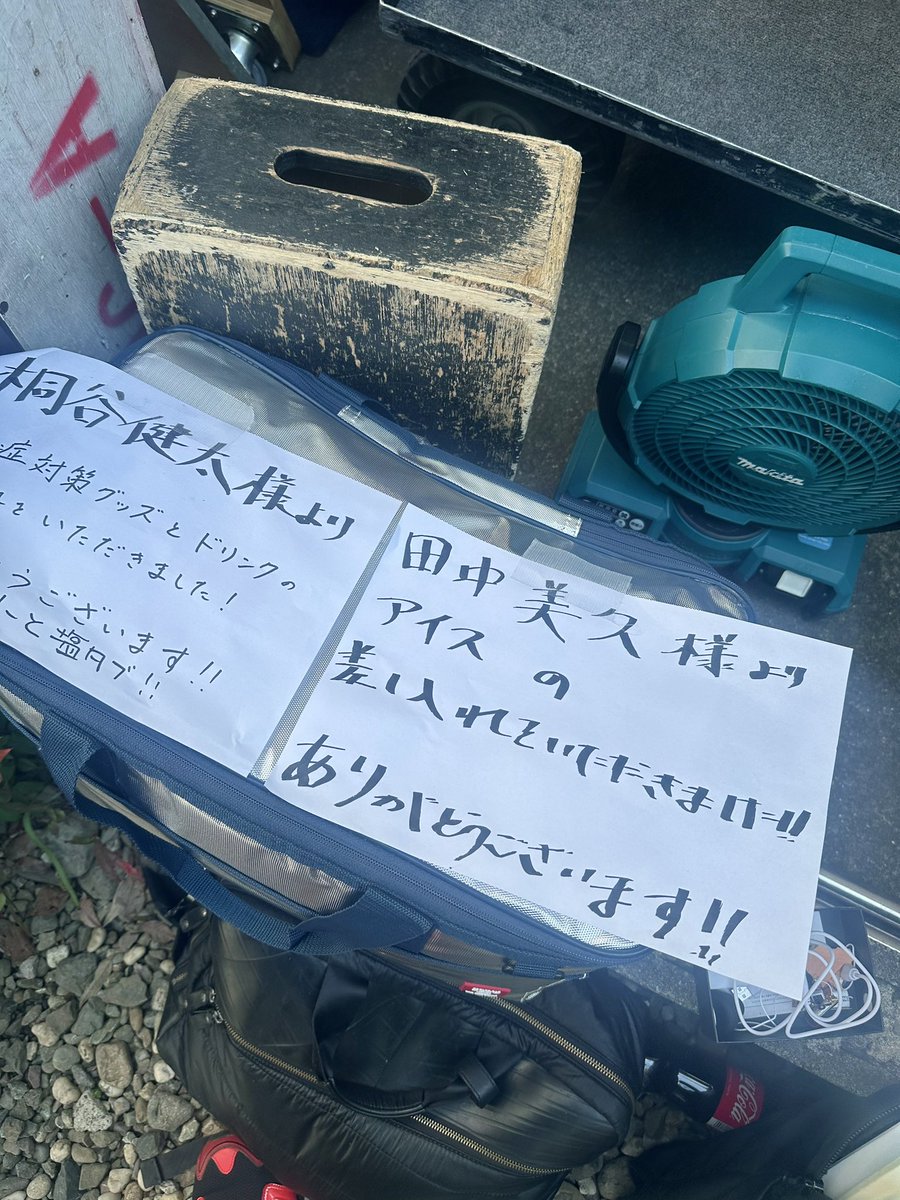 桐谷健太様より
症対策グッズとドリンクの
をいただきました!
うございます!!
にと塩タブ!!
田中美久様より
アイスの
差し入れをいただきました!!
ありがとうございます!!
makita